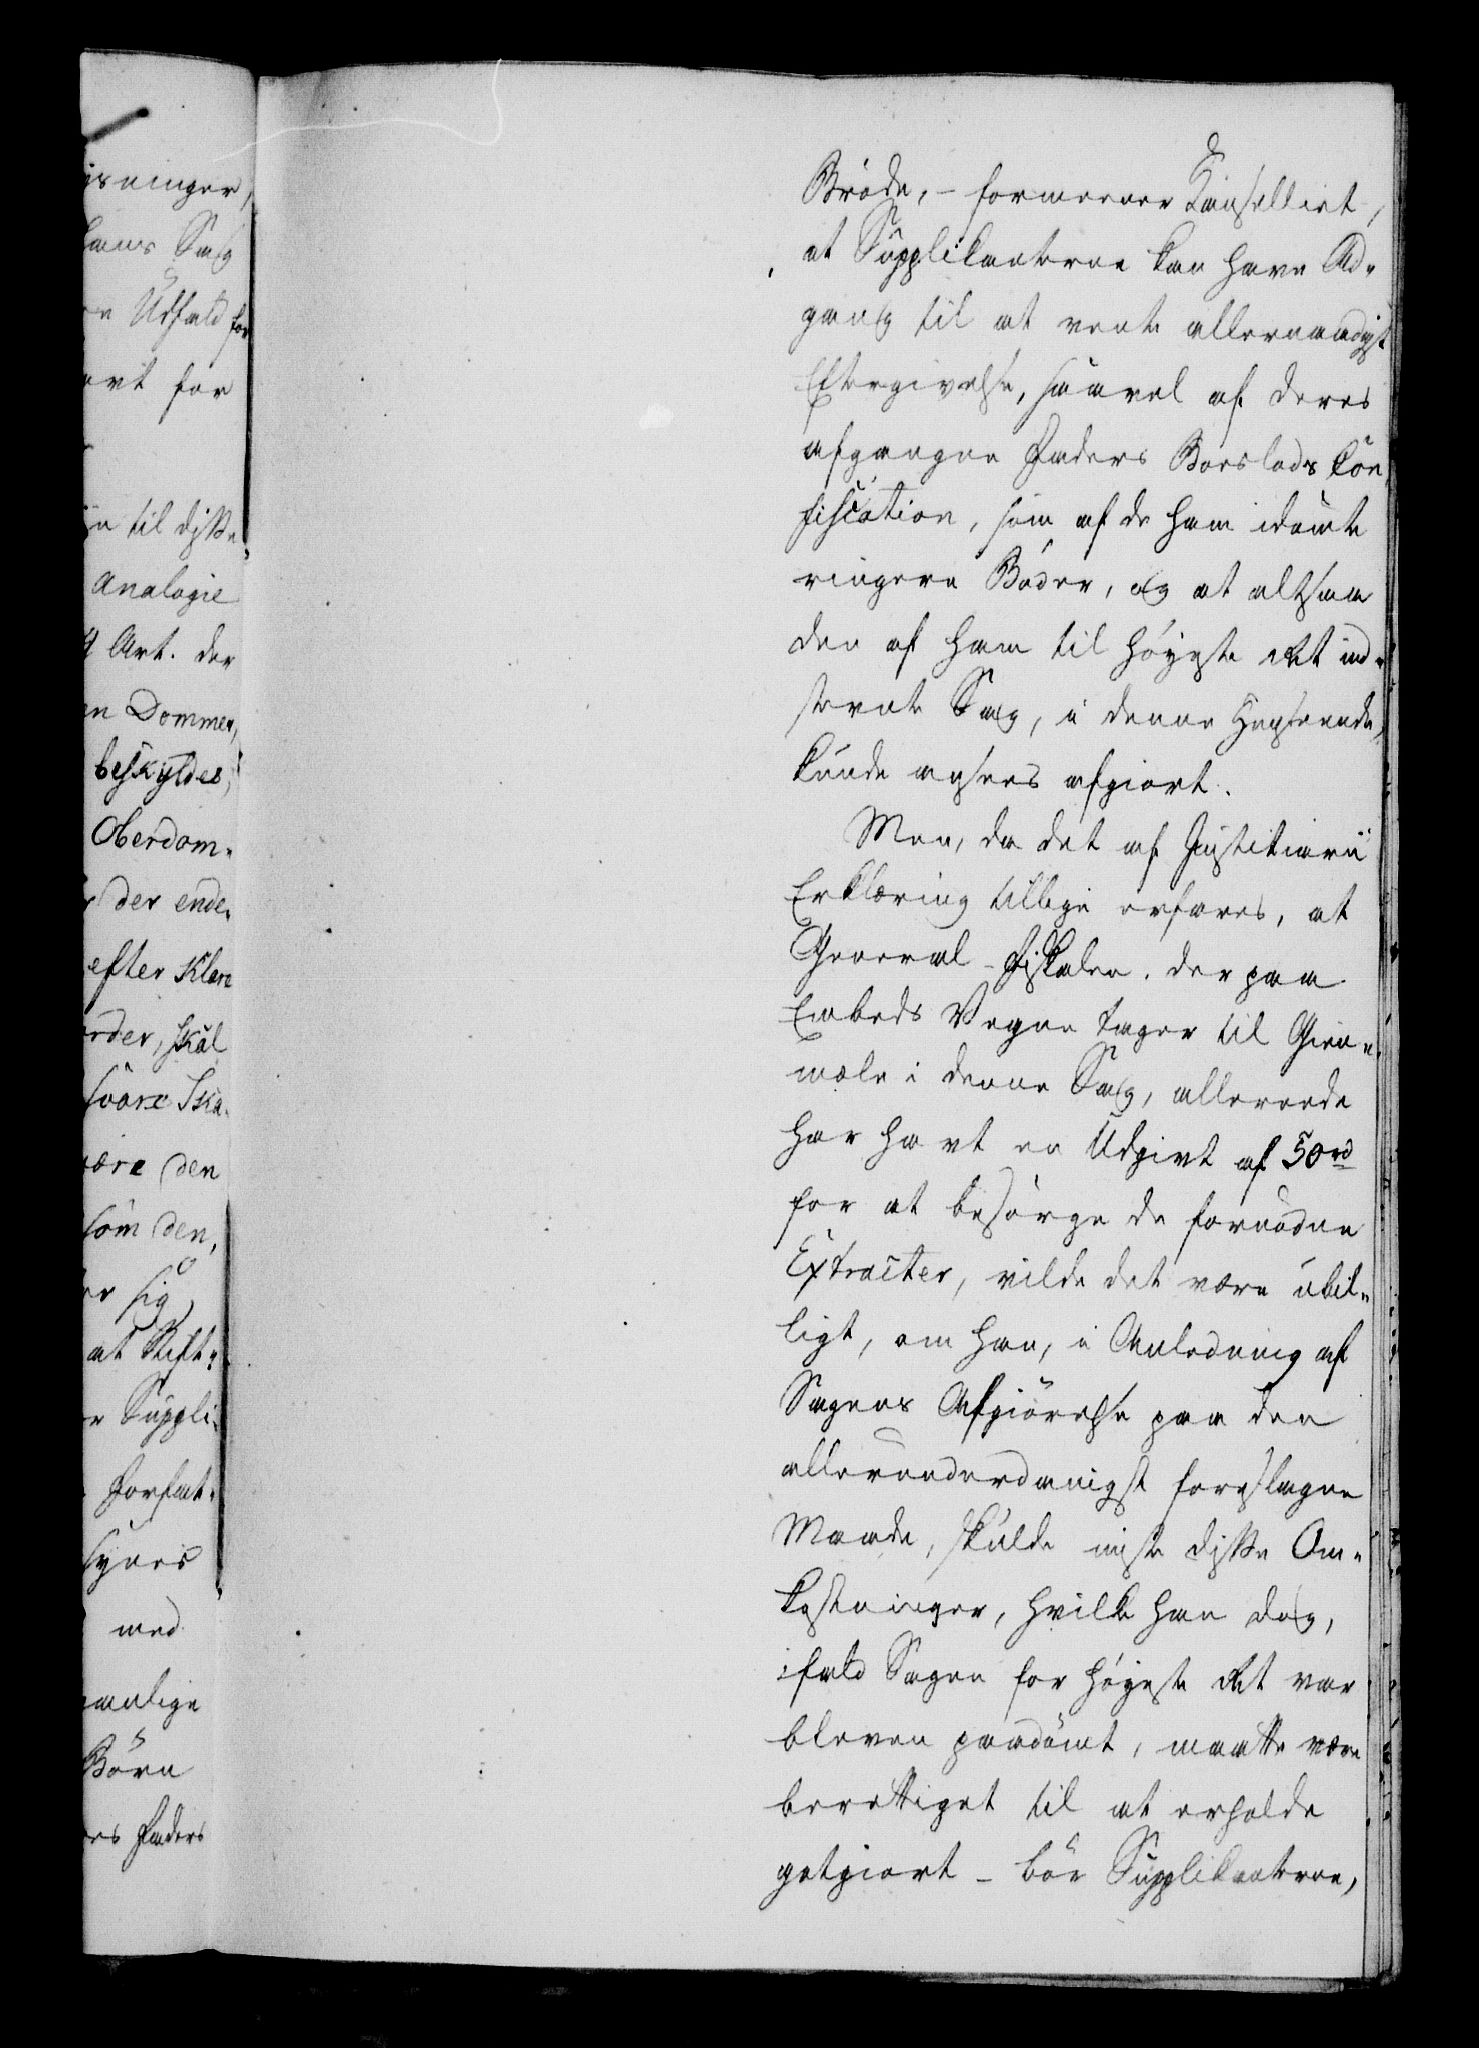 isninger,
hans Sag
en Udfald for
ort for
til disse
Analogie
4 Art. der
en Dommer,
beskyldes,
Oberdom-
der ende-
efter Klare
order, skal
svare Ska-
være den
som den,
er sig
at Stift-
r Suppli-
forfat-
synes
med
anlige
Børn
res Faders
Brøde, - formeener Kanselliet,
at Supplikanterne kan have Ad-
gang til at vente allernaadigst
Eftergivelse, saavel af deres
afgangne Faders Boeslods Con-
fiscation, som af de ham idømte
ringere Bøder, og at altsaa
den af ham til høyeste Ret ind-
stevnte Sag, i denne Henseende,
kunde ansees afgiort.
Men, da det af Justitiarii
Erklæring tillige erfares, at
General-Fiskalen, der paa
Embeds Vegne tager til Gien-
mæle i denne Sag, allereede
har havt en Udgivt af 50 rd
for at besørge de fornødne
Extracter, vilde det være ubil-
ligt, om han, i Anledning af
Sagens Afgiørelse paa den
allerunderdanigst foreslagne
Maade, skulde miste disse Om-
kostninger, hvilke han dog,
ifald Sagen for høyeste Ret var
bleven paadømt, maatte være
berettiget til at erholde
gotgiort - bør Supplikanterne,